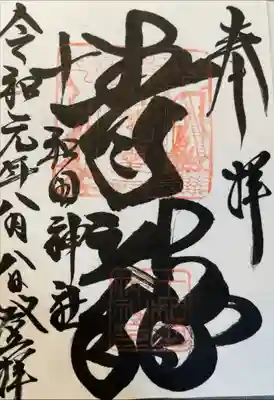 奉拝
青龍
十和田神社
令和元年八月八日登拝